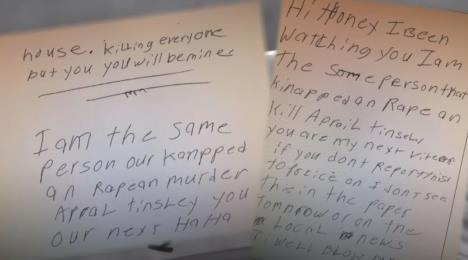 house. killing everyone
but you you will be mines
I am the same
person our kanpped
an Rapean murder
Apral tinsley you
our next HaHa
Hi Honey I Been
Watching you I am
The Same person that
kinapped an Rape an
kill Aproil tinsley
you are my next
if you dont Report this
to police an I don't see
this in the paper
tomnrow or on the
Local news
I well Blow